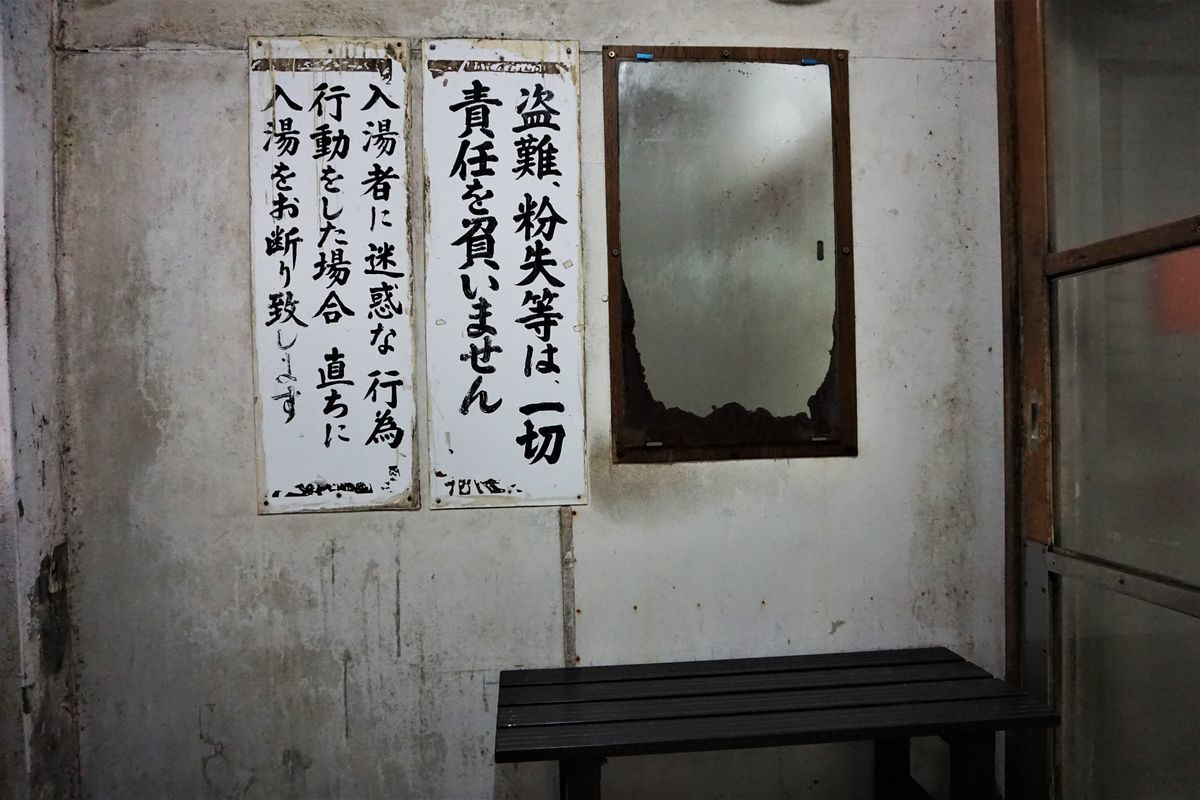 盗難、粉失等は、一切
責任を負いません
入湯者に迷惑な行為
行動をした場合 直ちに
入湯をお断り致します